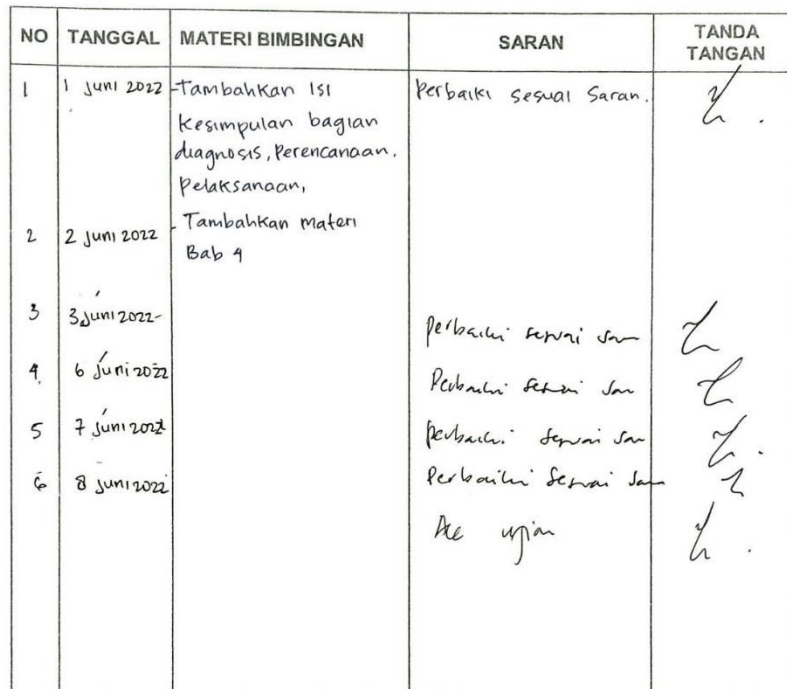 NO TANGGAL MATERI BIMBINGAN SARAN TANDA TANGAN
1 1 Juni 2022 -Tambahkan Isi Perbaiki sesuai Saran.
Kesimpulan bagian
diagnosis, Perencanaan.
Pelaksanaan,
2 2 Juni 2022 - Tambahkan materi
Bab 4
3 3 Juni 2022- perbaiki sesuai saran
4. 6 Juni 2022 Perbaiki sesuai saran
5 7 Juni 2022 perbaiki sesuai saran
6 8 Juni 2022 Perbaiki sesuai saran
Acc ujian